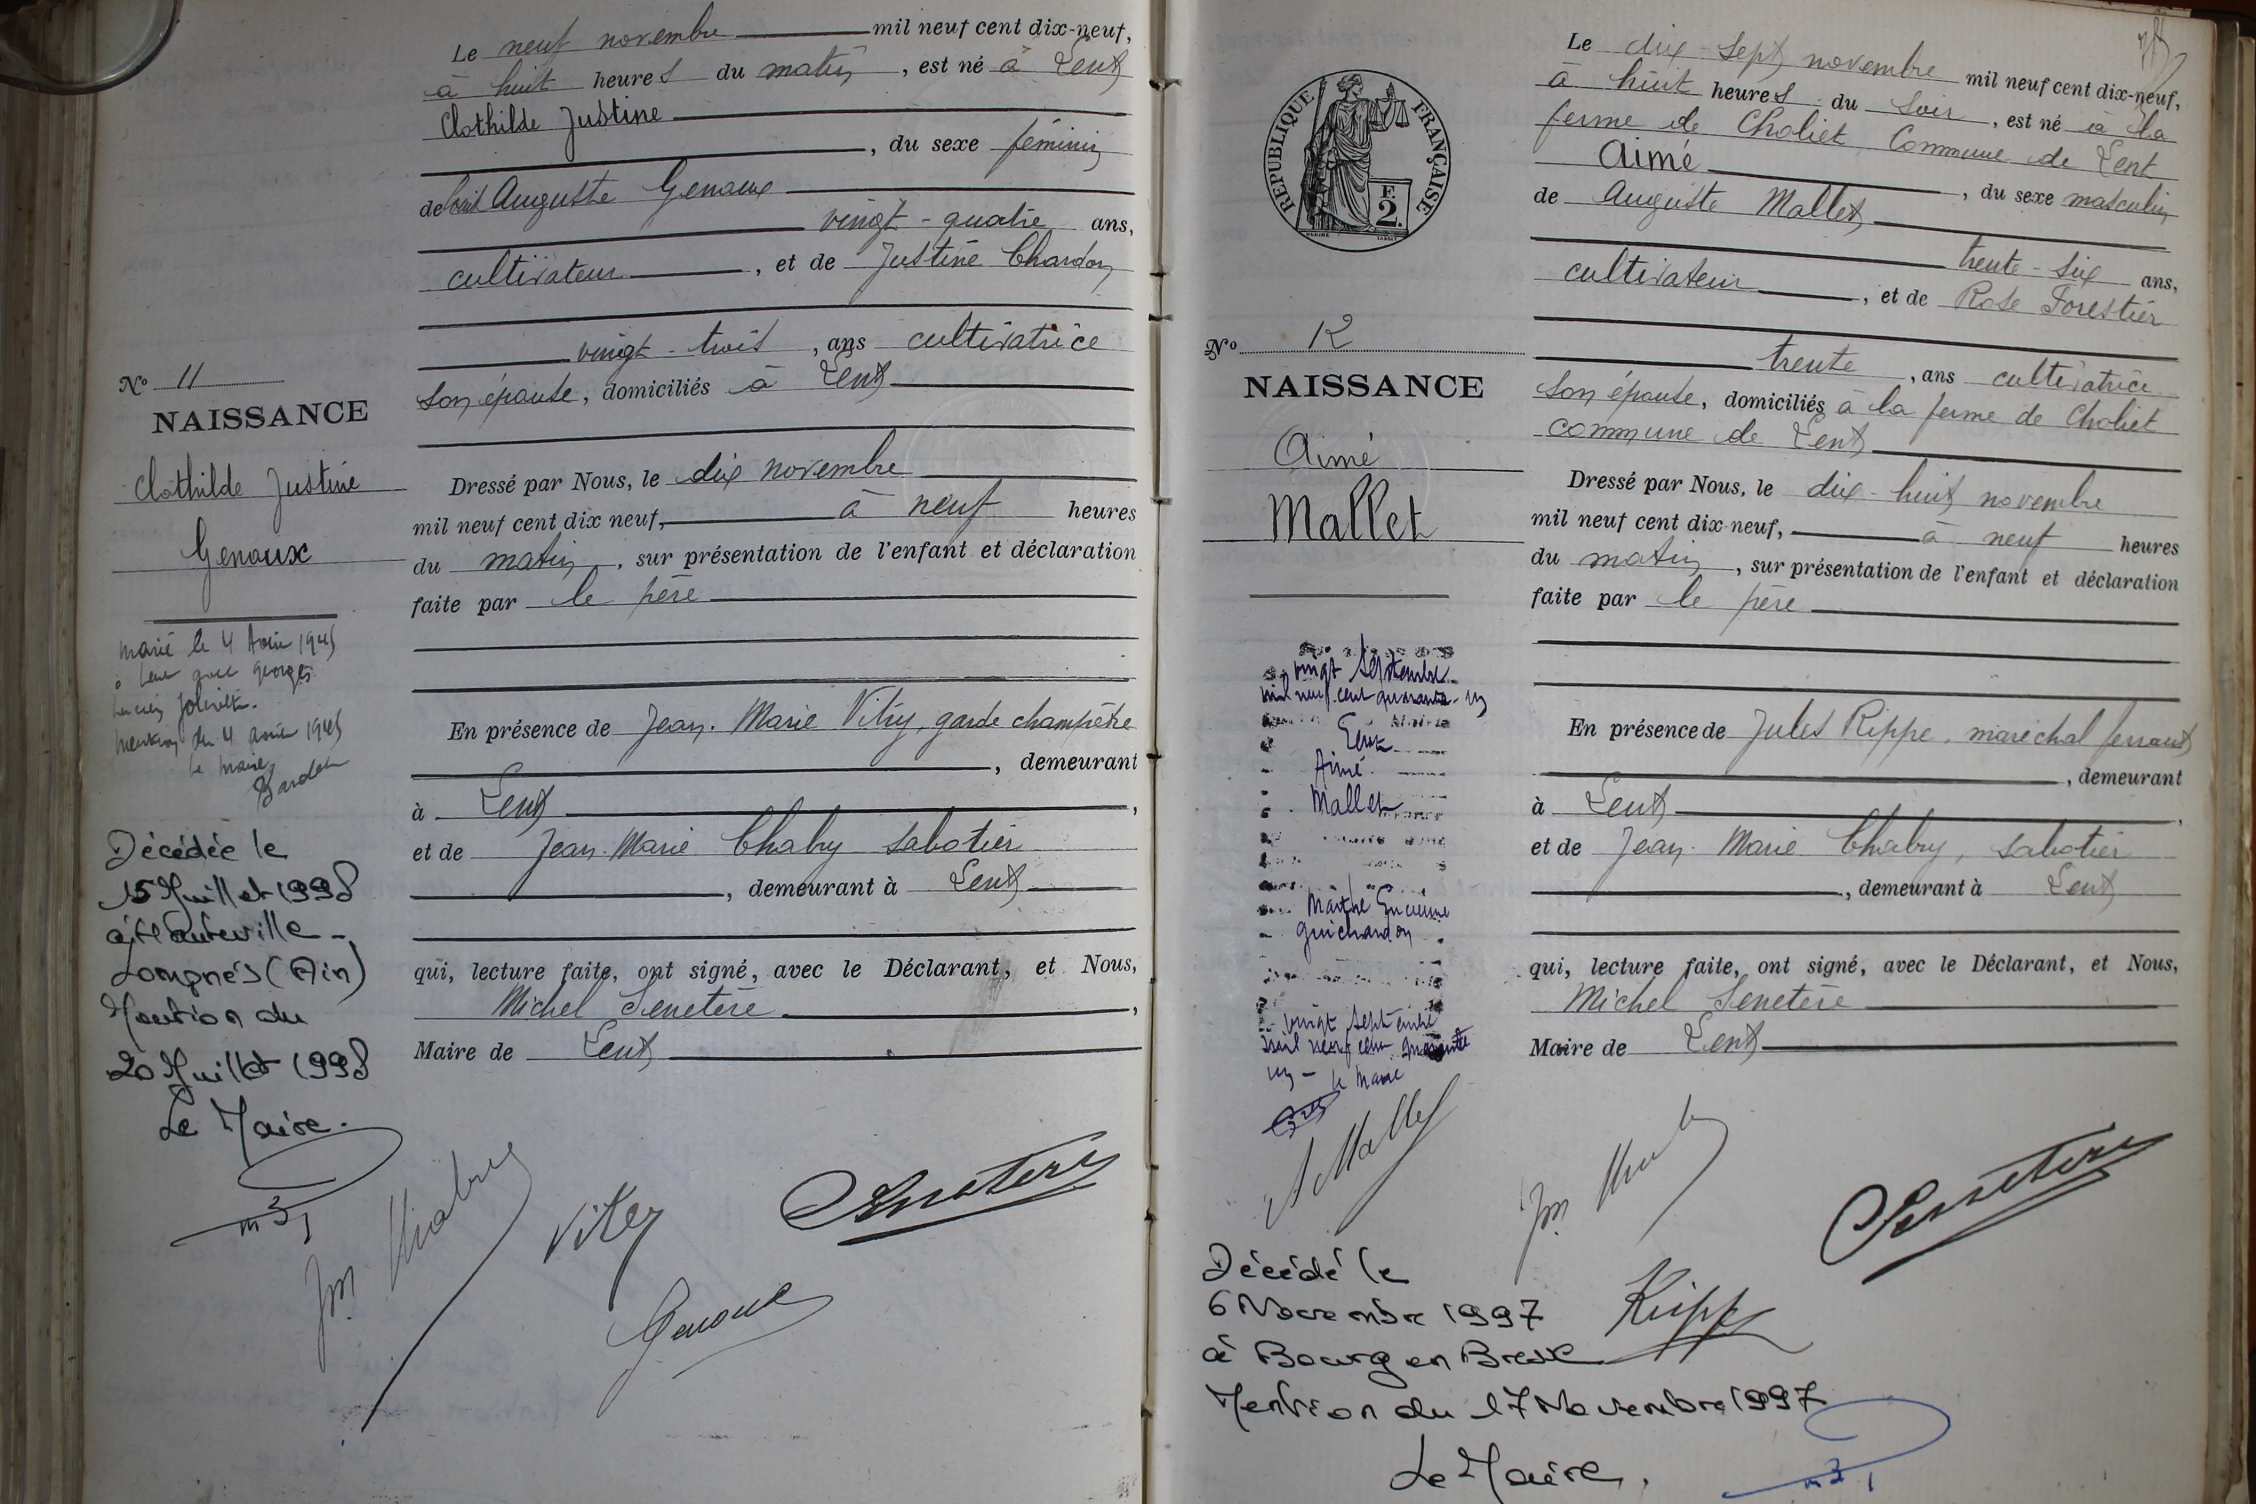 Le neuf novembre mil neuf cent dix-neuf,
à huit heures du matin, est né à Lent
Clothilde Justine
, du sexe féminin
de Auguste Genoux
vingt-quatre ans,
cultivateur, et de Justine Chardon
vingt-trois, ans cultivatrice
son épouse, domiciliés à Lent
Dressé par Nous, le dix novembre
mil neuf cent dix neuf, à neuf heures
du matin, sur présentation de l'enfant et déclaration
faite par le père
En présence de Jean-Marie Vitry, garde champêtre
, demeurant
à Lent,
et de Jean-Marie Chabry sabotier
, demeurant à Lent
qui, lecture faite, ont signé, avec le Déclarant, et Nous,
Michel Senetère,
Maire de Lent
No 11
NAISSANCE
Clothilde Justine
Genoux
marié le 4 Avril 1945
à Lent avec georges
mention du 4 avril 1945
le maire
Décédée le
15 Juillet 1998
à Hauteville-
Lompnes (Ain)
Mention du
20 Juillet 1998
Le Maire.
Jm Chabry
Vitry
Senetere
Genoux
REPUBLIQUE FRANÇAISE
F.
2.
Le dix-sept novembre mil neuf cent dix-neuf,
à huit heures du soir, est né à la
ferme de Choliet Commune de Lent
Aimé
, du sexe masculin
de Auguste Mallet
trente-six ans,
cultivateur, et de Rose Forestier
trente, ans cultivatrice
son épouse, domiciliés à la ferme de Choliet
commune de Lent
Dressé par Nous, le dix-huit novembre
mil neuf cent dix-neuf, à neuf heures
du matin, sur présentation de l'enfant et déclaration
faite par le père
En présence de Jules Rippe, maréchal ferrant
, demeurant
à Lent,
et de Jean-Marie Chabry, sabotier
, demeurant à Lent
qui, lecture faite, ont signé, avec le Déclarant, et Nous,
Michel Senetère
Maire de Lent
No 12
NAISSANCE
Aimé
Mallet
vingt septembre
mil neuf cent quarante un
Lent
Aimé
Mallet
Marthe
Guichardon
vingt septembre
mil neuf cent quarante
un - le Maire
A Mallet
Jm
Senetere
Rippe
Décédé le
6 Novembre 1997
à Bourg en Bresse
Mention du 17 Novembre 1997
Le Maire.